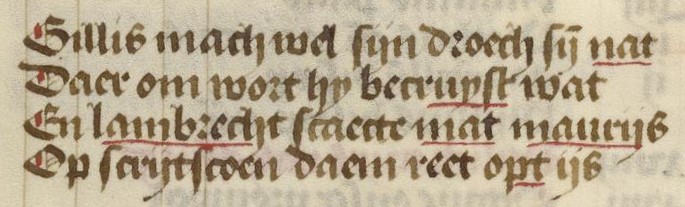 Gillis mach wel sijn droech sij nat
Daer om wort hy becruyst wat
En lambrecht scaecte mat maurijs
Op scrijtscoen daem reet opt ijs